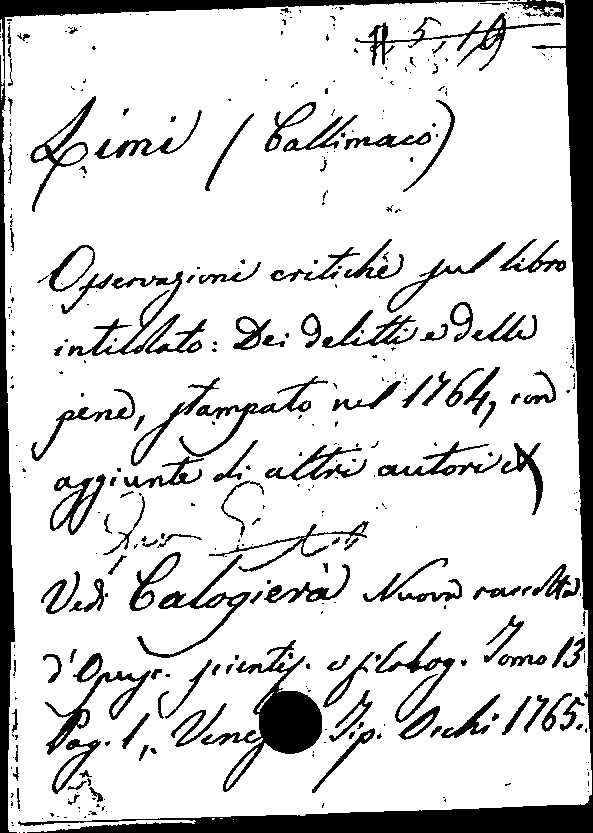 Limi (Callimaco)
Osservazioni critiche sul libro
intitolato: Dei delitti e delle
pene, stampato nel 1764, con
aggiunte di altri autori
Vedi Calogierà Nuova raccolta
d'Opusc. scientif. e filolog. Tomo 13
Pag. 1, Venez Tip. Occhi 1765.